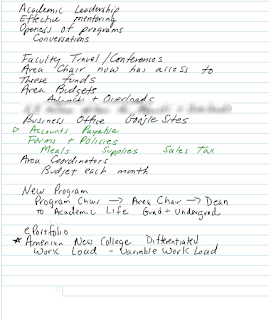 Academic Leadership
Effective mentoring
Openess of programs
Conversations
Faculty Travel / Conferences
Area Chair now has access to
These funds
Area Budgets
Adjuncts + Overloads
Business Office Google Sites
Accounts Payable
Forms + Policies
Meals Supplies Sales Tax
Area Coordinators
Budget each month
New Program
Program Chair → Area Chair → Dean
to Academic Life Grad + Undergrad
ePortfolio
* American New College Differentiated
Work Load - Variable Work Load